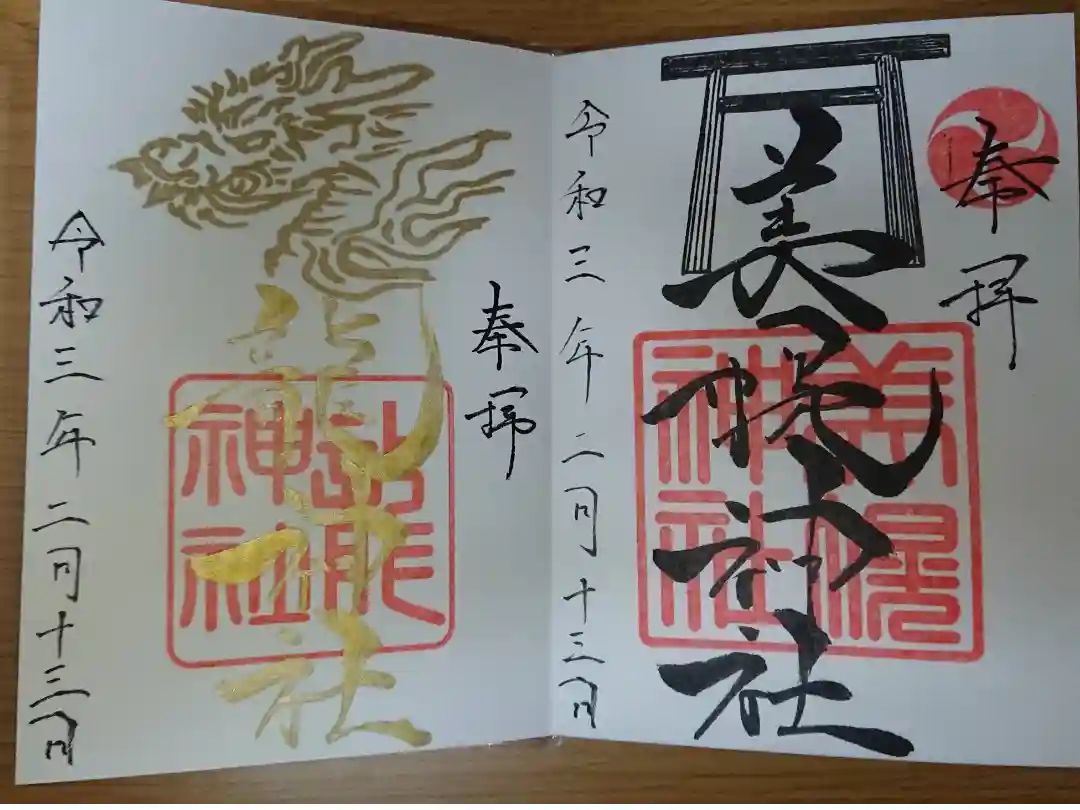 奉拝
美幌神社
美幌
神社
令和三年二月十三日
奉拝
龍神社
神社
令和三年二月十三日